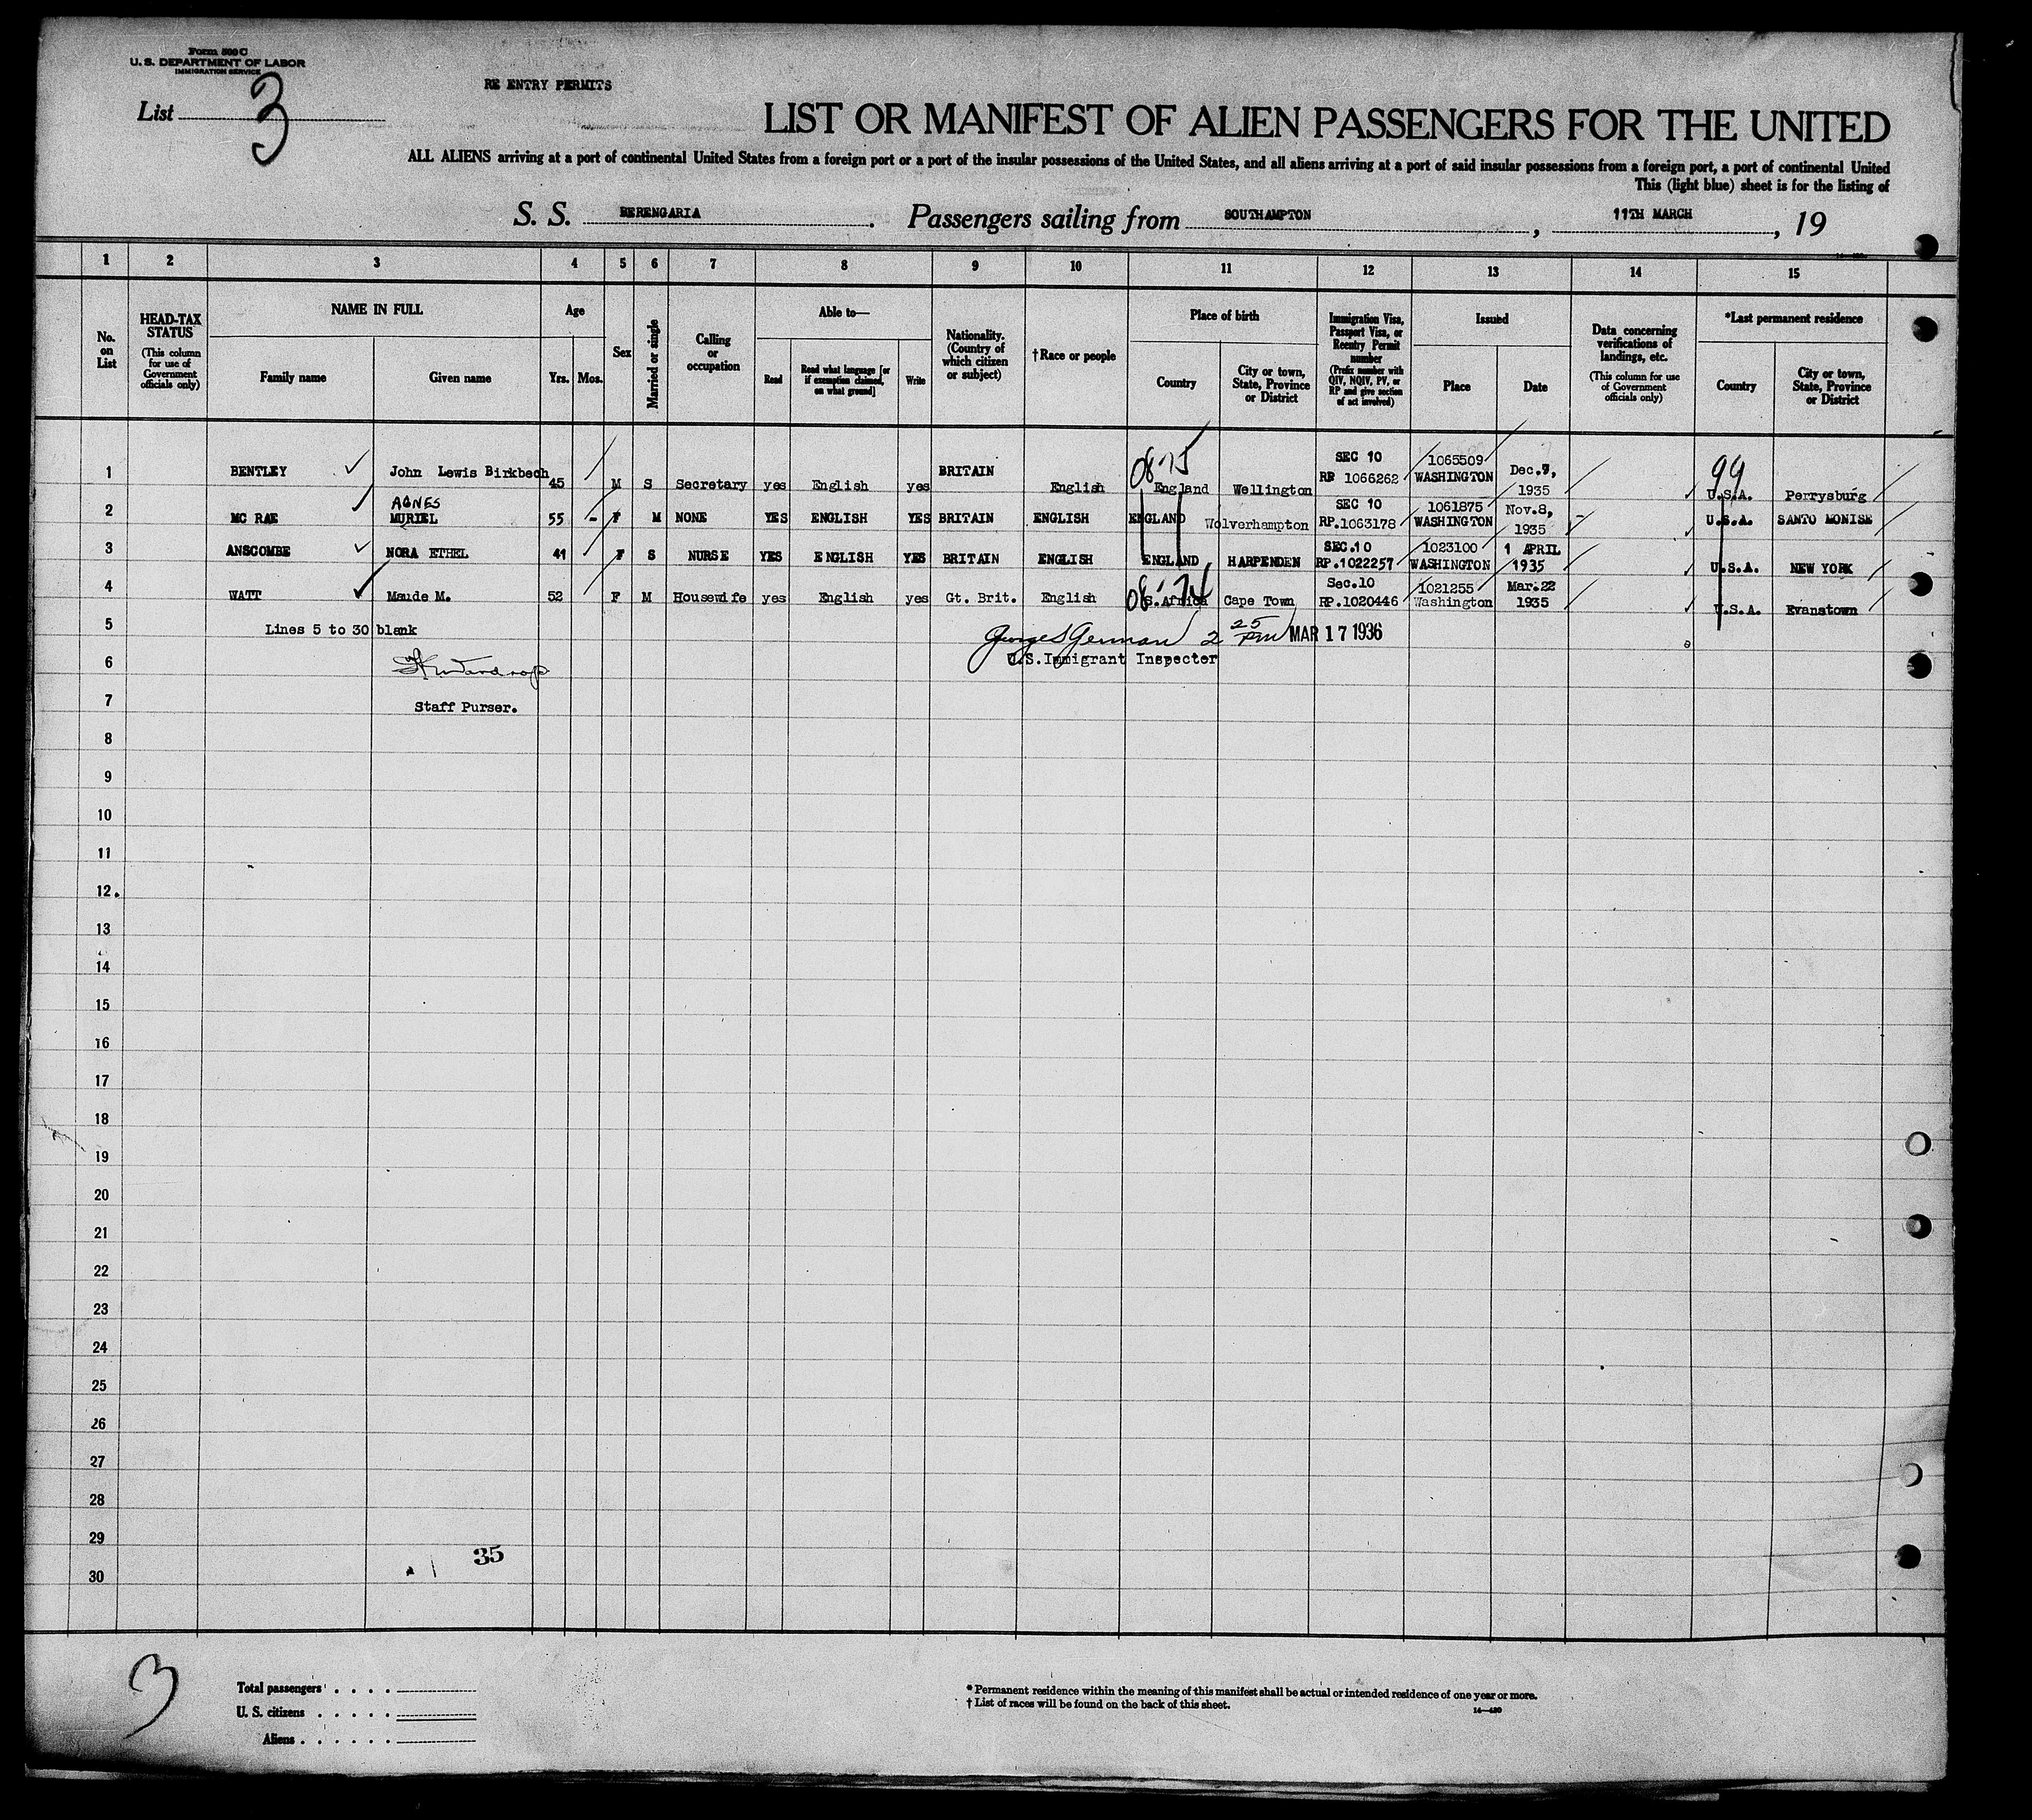 Form 500 C
U. S. DEPARTMENT OF LABOR
IMMIGRATION SERVICE
RE ENTRY PERMITS
List 3
LIST OR MANIFEST OF ALIEN PASSENGERS FOR THE UNITED
ALL ALIENS arriving at a port of continental United States from a foreign port or a port of the insular possessions of the United States, and all aliens arriving at a port of said insular possessions from a foreign port, a port of continental United
This (light blue) sheet is for the listing of
S. S. BERENGARIA. Passengers sailing from SOUTHAMPTON, 11TH MARCH, 19
1 2 3 4 5 6 7 8 9 10 11 12 13 14 15
No. on List
HEAD-TAX STATUS (This column for use of Government officials only)
NAME IN FULL
Family name
Given name
Age
Yrs. Mos.
Sex
Married or single
Calling or occupation
Able to—
Read
Read what language [or if exemption claimed, on what ground]
Write
Nationality. (Country of which citizen or subject)
†Race or people
Place of birth
Country
City or town, State, Province or District
Immigration Visa, Passport Visa, or Reentry Permit number (Prefix number with QIV, NQIV, PV, or RP and give section of act involved)
Issued
Place
Date
Data concerning verifications of landings, etc. (This column for use of Government officials only)
*Last permanent residence
Country
City or town, State, Province or District
1 BENTLEY John Lewis Birkbech 45 M S Secretary yes English yes BRITAIN English 0875 England Wellington SEC 10 RP 1066262 1065509 WASHINGTON Dec.7, 1935 99 U.S.A. Perrysburg
2 MC RAE AGNES MURIEL 55 - F M NONE YES ENGLISH YES BRITAIN ENGLISH ENGLAND Wolverhampton SEC 10 RP.1063178 1061875 WASHINGTON Nov.8, 1935 U.S.A. SANTO MONISE
3 ANSCOMBE NORA ETHEL 41 F S NURSE YES ENGLISH YES BRITAIN ENGLISH ENGLAND HARPENDEN SEC.10 RP.1022257 1023100 WASHINGTON 1 APRIL 1935 U.S.A. NEW YORK
4 WATT Maude M. 52 F M Housewife yes English yes Gt. Brit. English 08-74 S.Africa Cape Town Sec.10 RP.1020446 1021255 Washington Mar.22 1935 U.S.A. Evanstown
5 Lines 5 to 30 blank George S German 2 25 PM MAR 17 1936
6 U.S.Immigrant Inspector
7 Staff Purser.
8
9
10
11
12
13
14
15
16
17
18
19
20
21
22
23
24
25
26
27
28
29 35
30
3
Total passengers
U. S. citizens
Aliens
* Permanent residence within the meaning of this manifest shall be actual or intended residence of one year or more.
† List of races will be found on the back of this sheet.
14—430